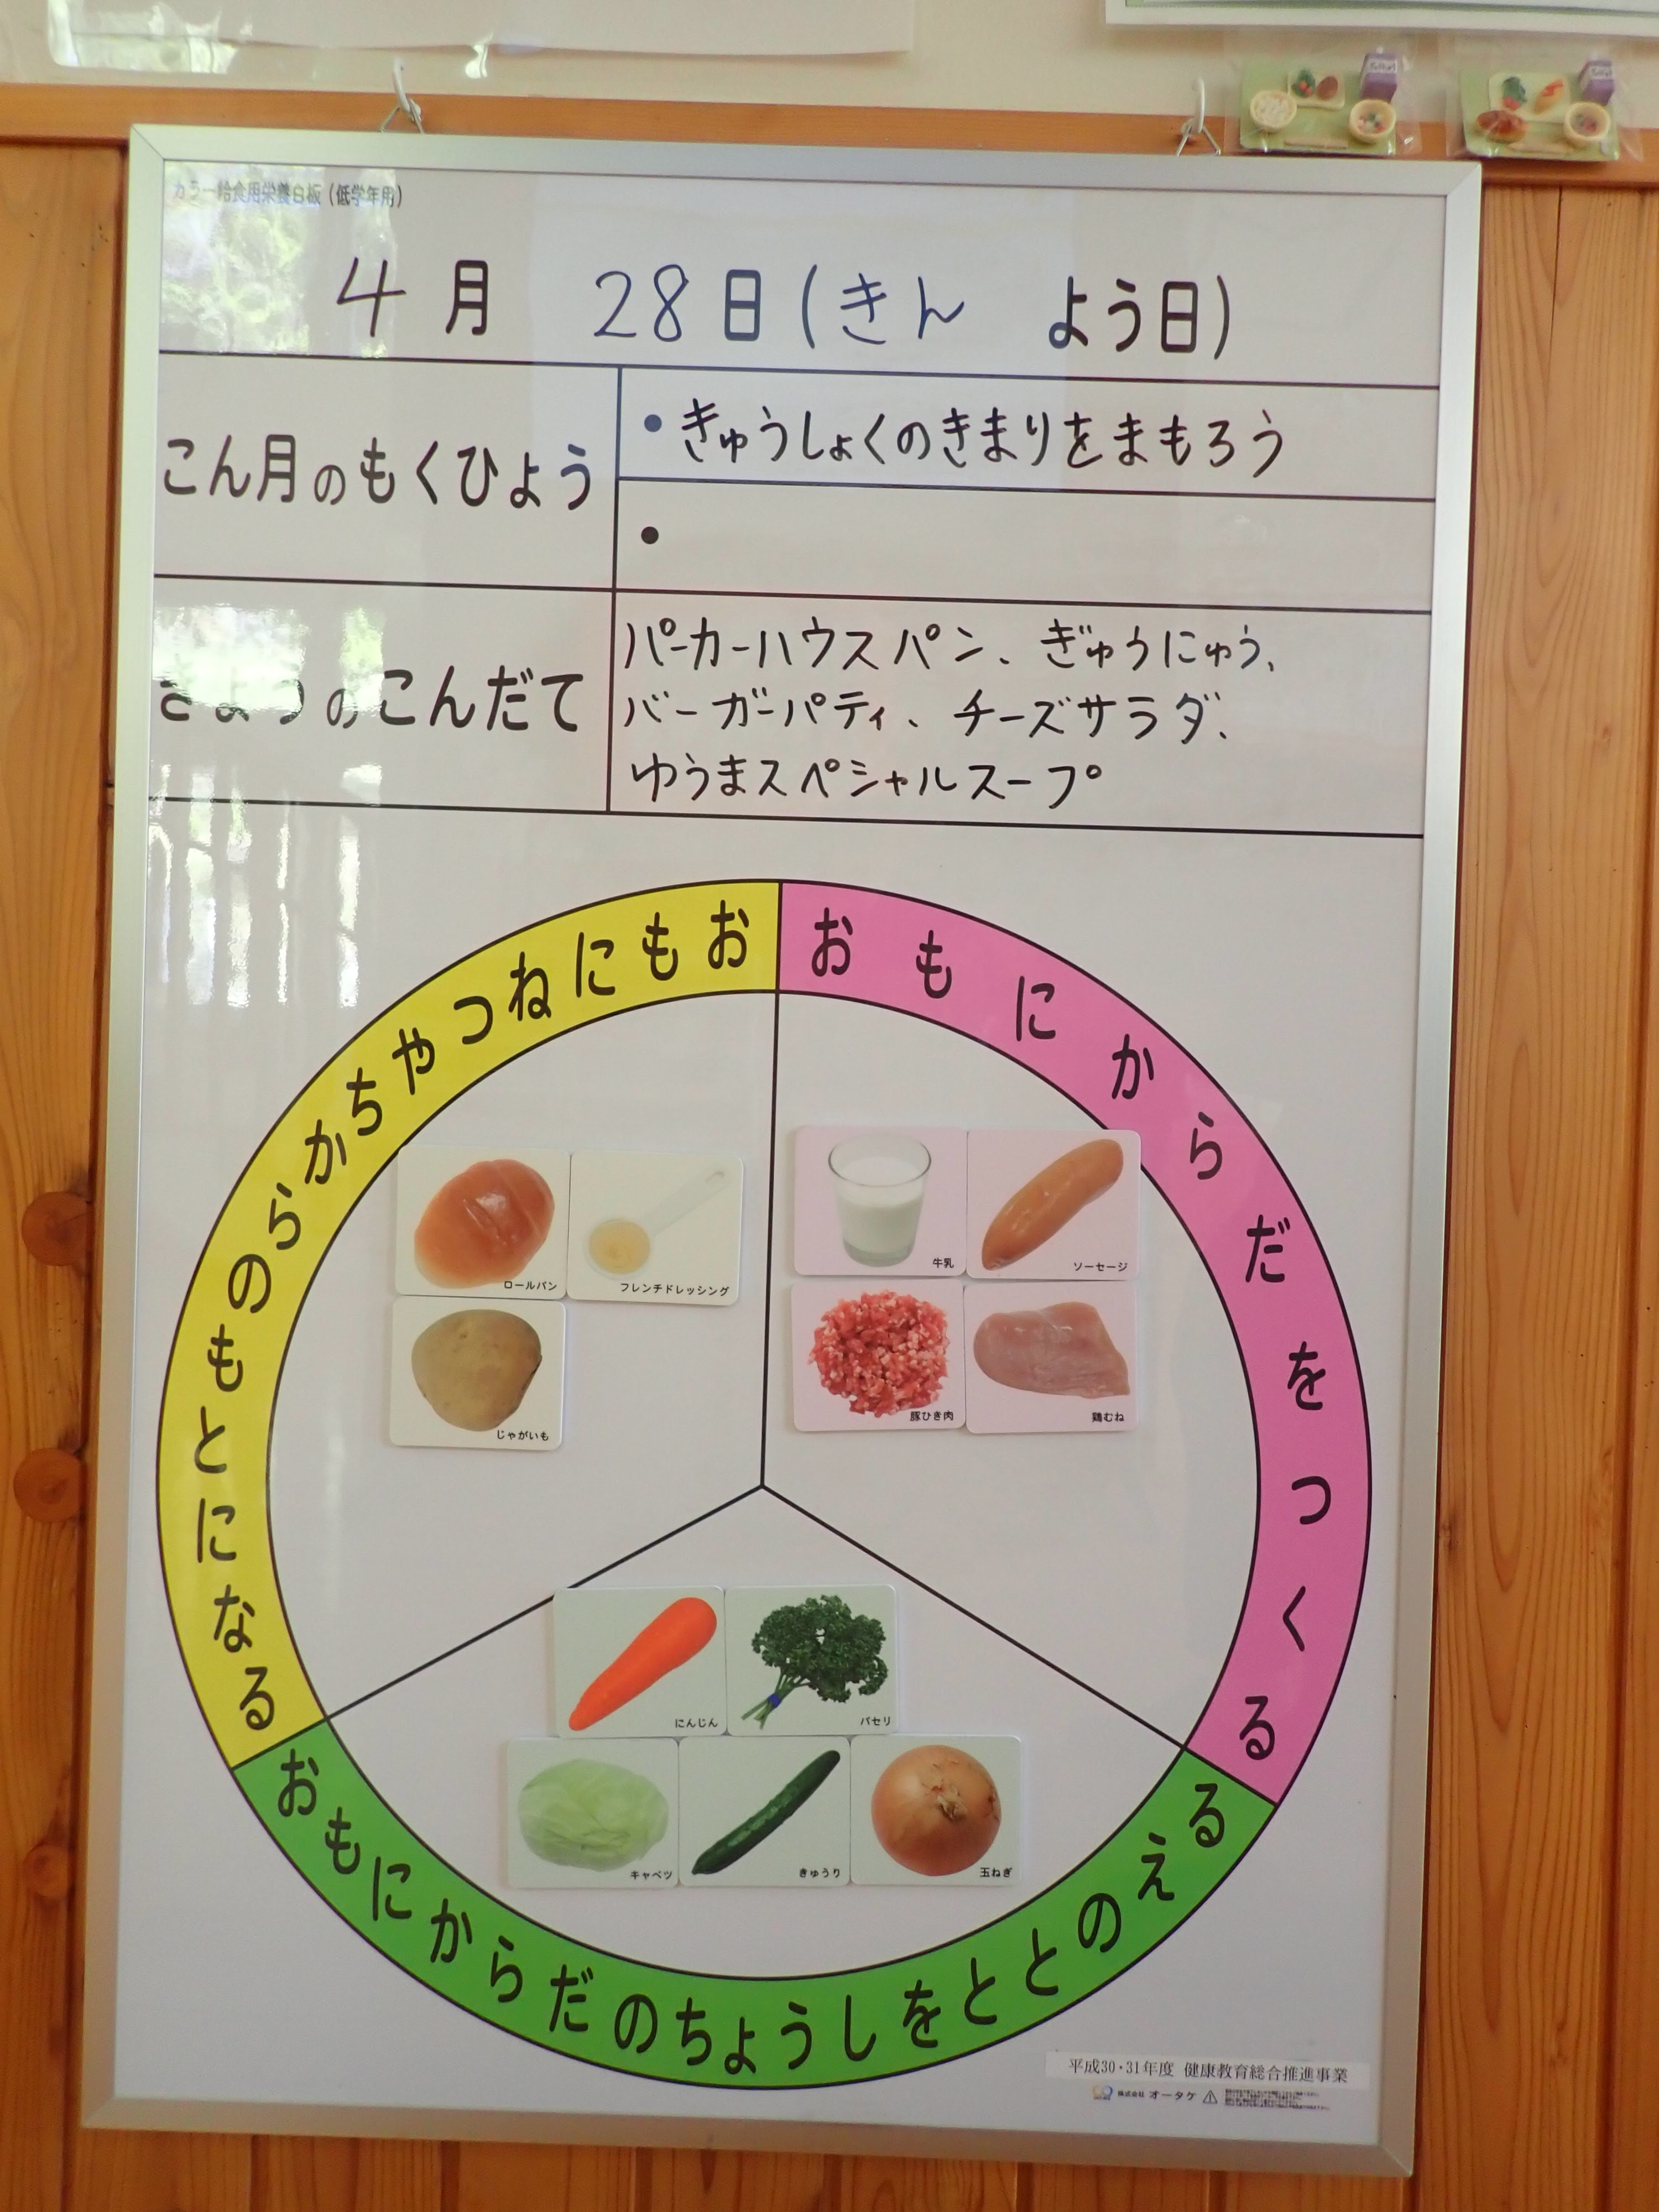 カラー給食用栄養白板（低学年用）
4月 28日(きん よう日)
こん月のもくひょう
・きゅうしょくのきまりをまもろう
・
きょうのこんだて
パーカーハウスパン、ぎゅうにゅう、
バーガーパティ、チーズサラダ、
ゆうまスペシャルスープ
おもにねつやちからのもとになる
おもにからだをつくる
ロールパン
フレンチドレッシング
じゃがいも
牛乳
ソーセージ
豚ひき肉
鶏むね
にんじん
パセリ
キャベツ
きゅうり
玉ねぎ
おもにからだのちょうしをととのえる
平成30・31年度 健康教育総合推進事業
株式会社 オータケ